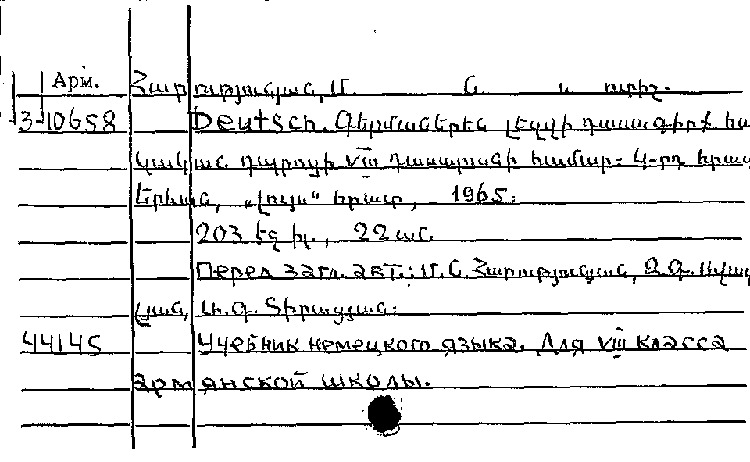 Арм. Հարությունյան, Մ. Ս. և ուրիշ.
3-10658 Deutsch. Գերմաներեն լեզվի դասագիրք հա
կական դպրոցի VIII դասարանի համար: 4-րդ հրատ
Երևան, „Լույս“ հրատ, 1965:
203 էջ իլ., 22 սմ.
Перед загл. авт.: Մ. Ս. Հարությունյան,
յան, Տիրացյան:
44145 Учебник немецкого языка. Для VIII класса
армянской школы.